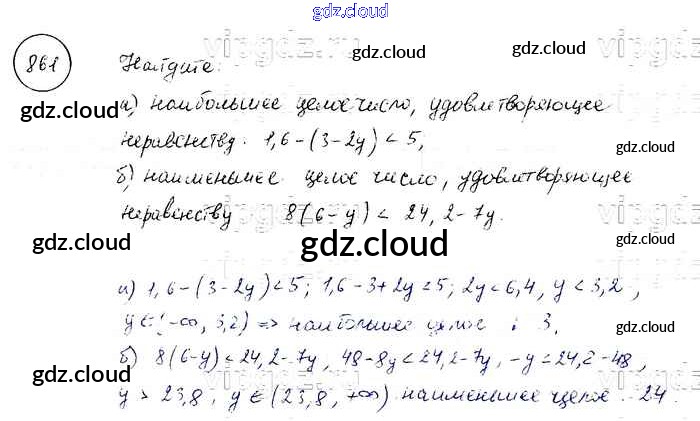 gdz.cloud
861 Найдите:
а) наибольшее целое число, удовлетворяющее
неравенству. 1,6-(3-2y)<5,
б) наименьшее целое число, удовлетворяющее
неравенству 8(6-y)< 24,2-7y.
gdz.cloud
а) 1,6-(3-2y)<5; 1,6-3+2y<5; 2y<6,4, y<3,2,
y∈(-∞, 3,2) => наибольшее целое : 3.
б) 8(6-y)<24,2-7y, 48-8y<24,2-7y, -y<24,2-48,
y> 23,8, y∈(23,8, +∞) наименьшее целое 24
gdz.cloud
gdz.cloud
gdz.cloud
gdz.cloud
gdz.cloud
gdz.cloud
gdz.cloud
gdz.cloud
gdz.cloud